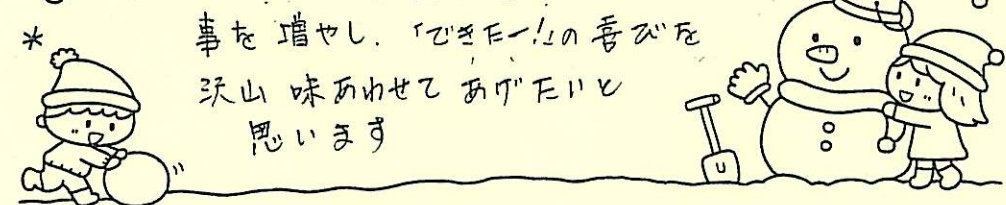 事を増やし、「できたー!」の喜びを
沢山味あわせてあげたいと
思います